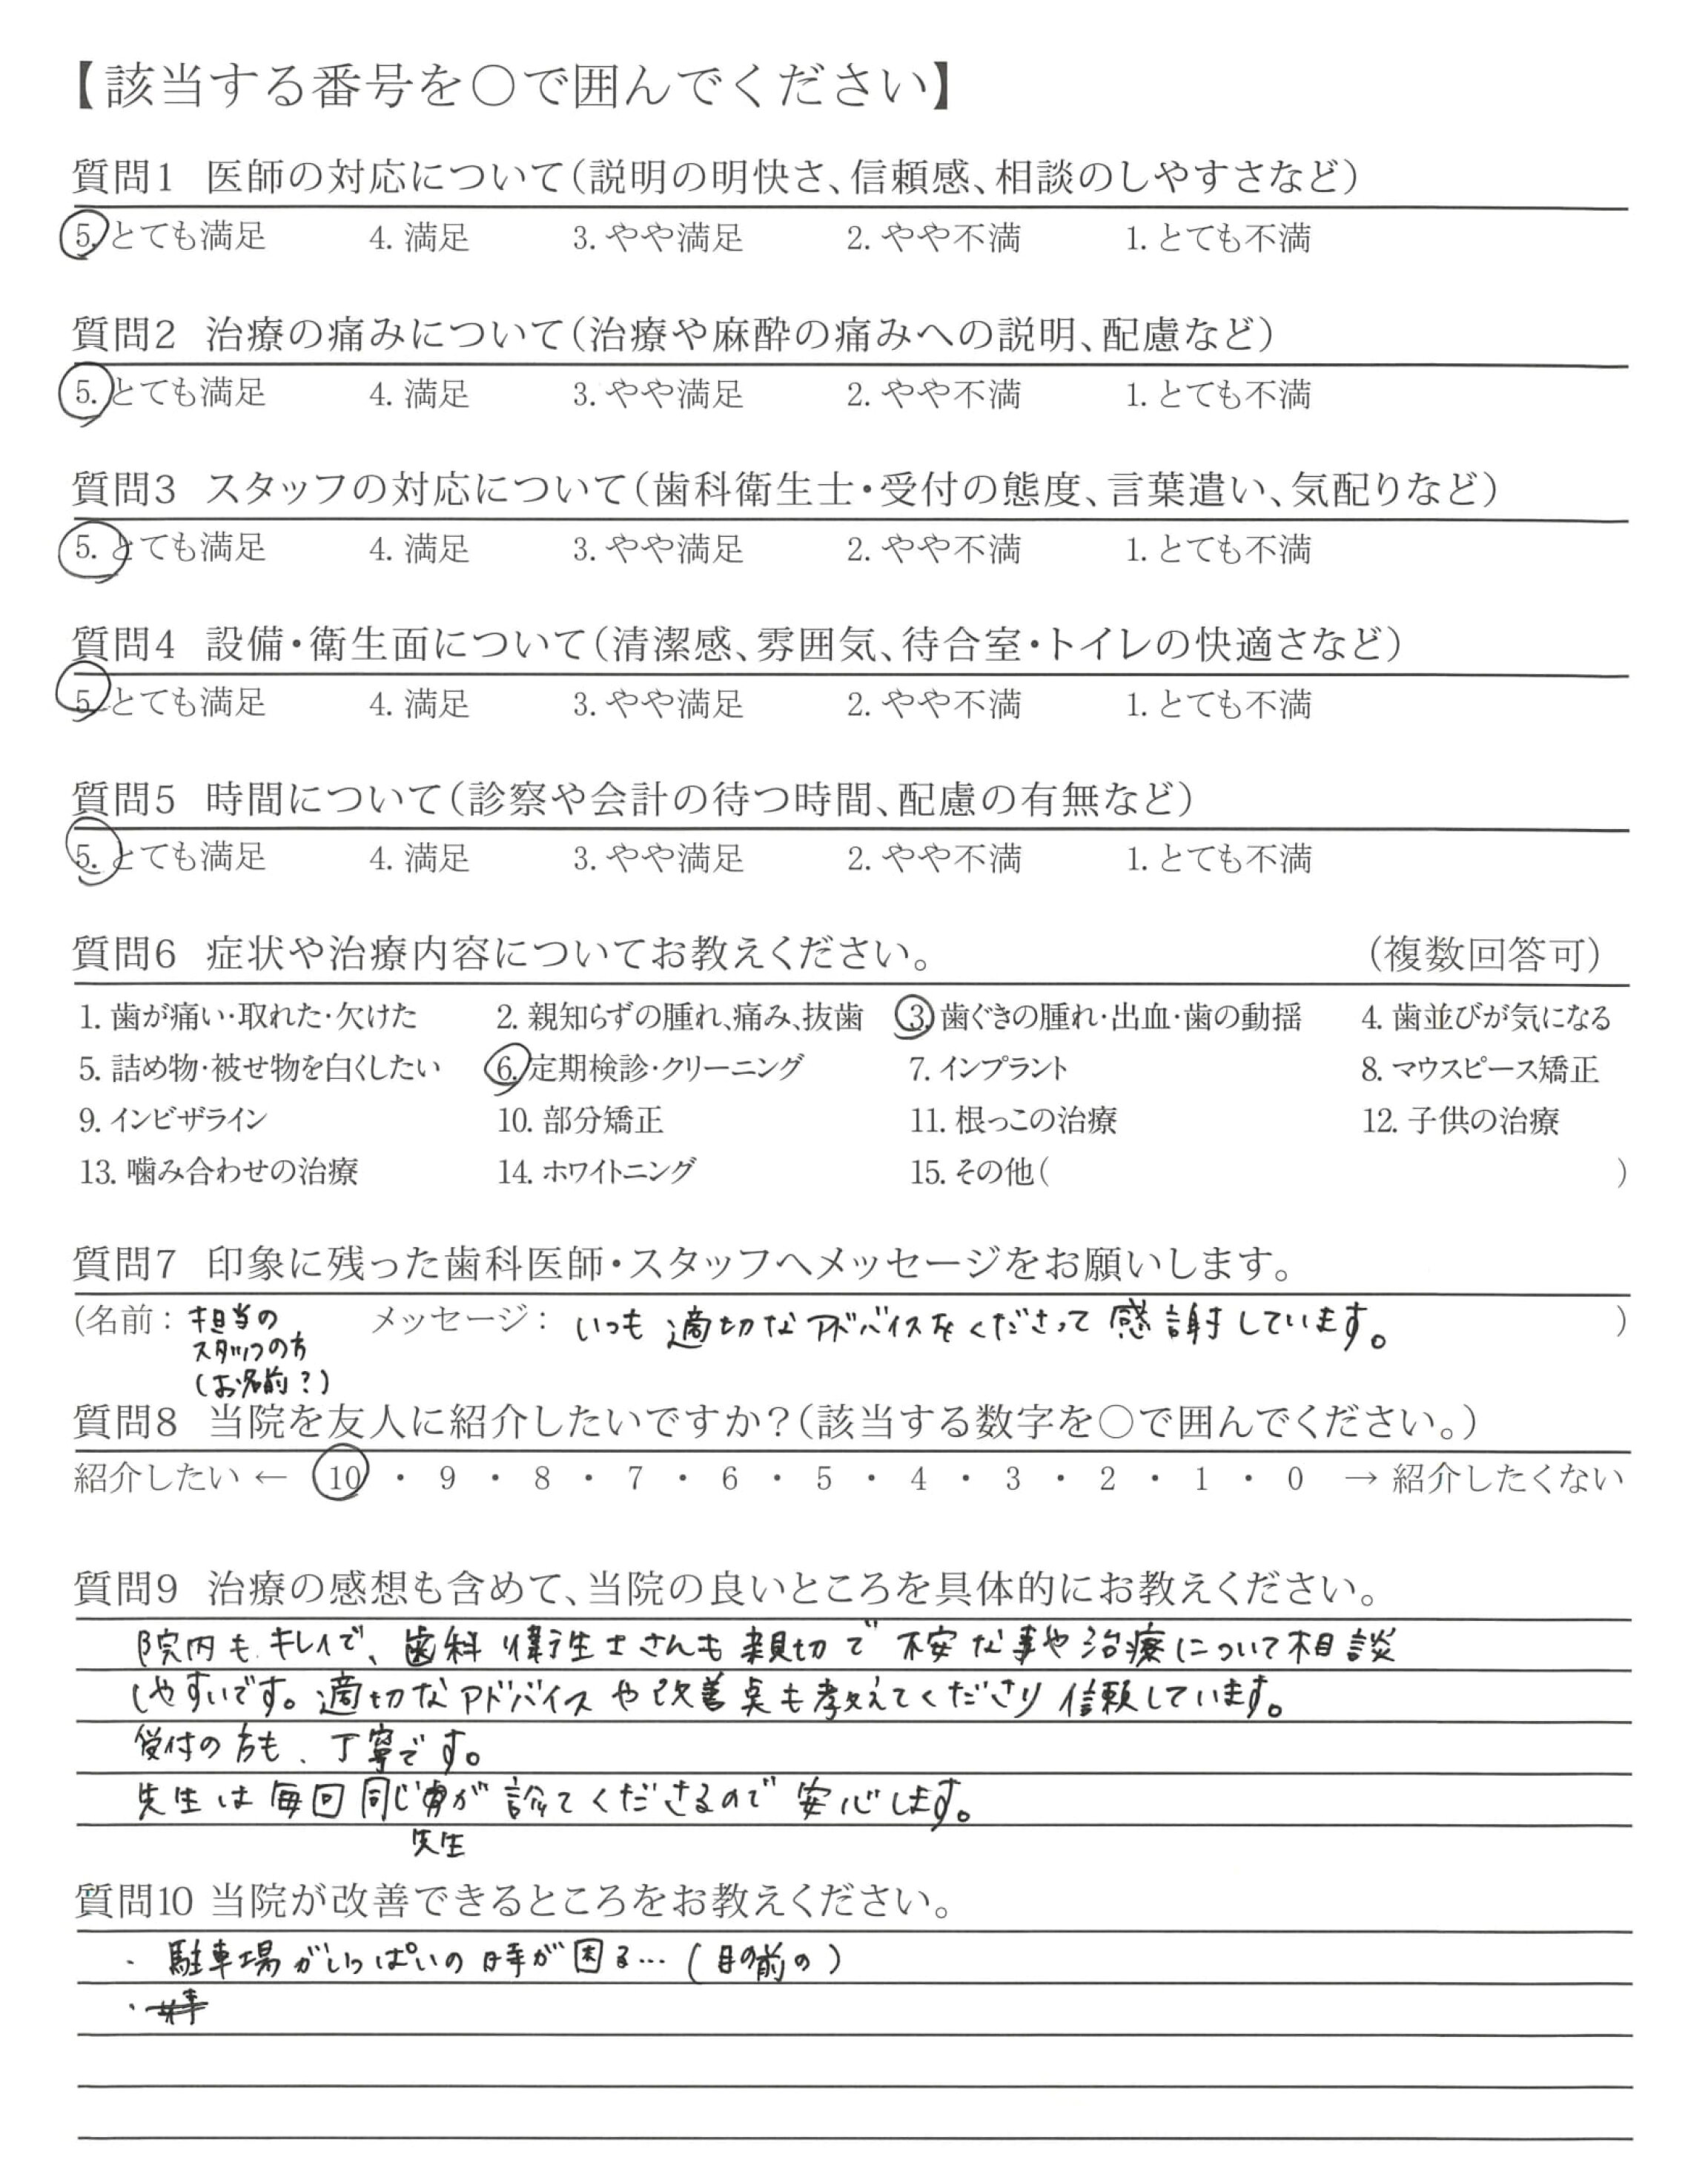 【該当する番号を○で囲んでください】
質問1 医師の対応について(説明の明快さ、信頼感、相談のしやすさなど)
5. とても満足 4. 満足 3. やや満足 2. やや不満 1. とても不満
質問2 治療の痛みについて(治療や麻酔の痛みへの説明、配慮など)
5. とても満足 4. 満足 3. やや満足 2. やや不満 1. とても不満
質問3 スタッフの対応について(歯科衛生士・受付の態度、言葉遣い、気配りなど)
5. とても満足 4. 満足 3. やや満足 2. やや不満 1. とても不満
質問4 設備・衛生面について(清潔感、雰囲気、待合室・トイレの快適さなど)
5. とても満足 4. 満足 3. やや満足 2. やや不満 1. とても不満
質問5 時間について(診察や会計の待つ時間、配慮の有無など)
5. とても満足 4. 満足 3. やや満足 2. やや不満 1. とても不満
質問6 症状や治療内容についてお教えください。 (複数回答可)
1. 歯が痛い・取れた・欠けた 2. 親知らずの腫れ、痛み、抜歯 3. 歯ぐきの腫れ・出血・歯の動揺 4. 歯並びが気になる
5. 詰め物・被せ物を白くしたい 6. 定期検診・クリーニング 7. インプラント 8. マウスピース矯正
9. インビザライン 10. 部分矯正 11. 根っこの治療 12. 子供の治療
13. 噛み合わせの治療 14. ホワイトニング 15. その他( )
質問7 印象に残った歯科医師・スタッフへメッセージをお願いします。
(名前: 担当の メッセージ: いつも適切なアドバイスをくださって感謝しています。 )
スタッフの方
(お名前?)
質問8 当院を友人に紹介したいですか?(該当する数字を○で囲んでください。)
紹介したい ← 10 ・ 9 ・ 8 ・ 7 ・ 6 ・ 5 ・ 4 ・ 3 ・ 2 ・ 1 ・ 0 → 紹介したくない
質問9 治療の感想も含めて、当院の良いところを具体的にお教えください。
院内もキレイで、歯科衛生士さんも親切で不安な事や治療について相談
しやすいです。適切なアドバイスや改善点も教えてくださり信頼しています。
受付の方も、丁寧です。
先生は毎回同じ が診てくださるので安心します。
先生
質問10 当院が改善できるところをお教えください。
・駐車場がいっぱいの時が困る…(目の前の)
・